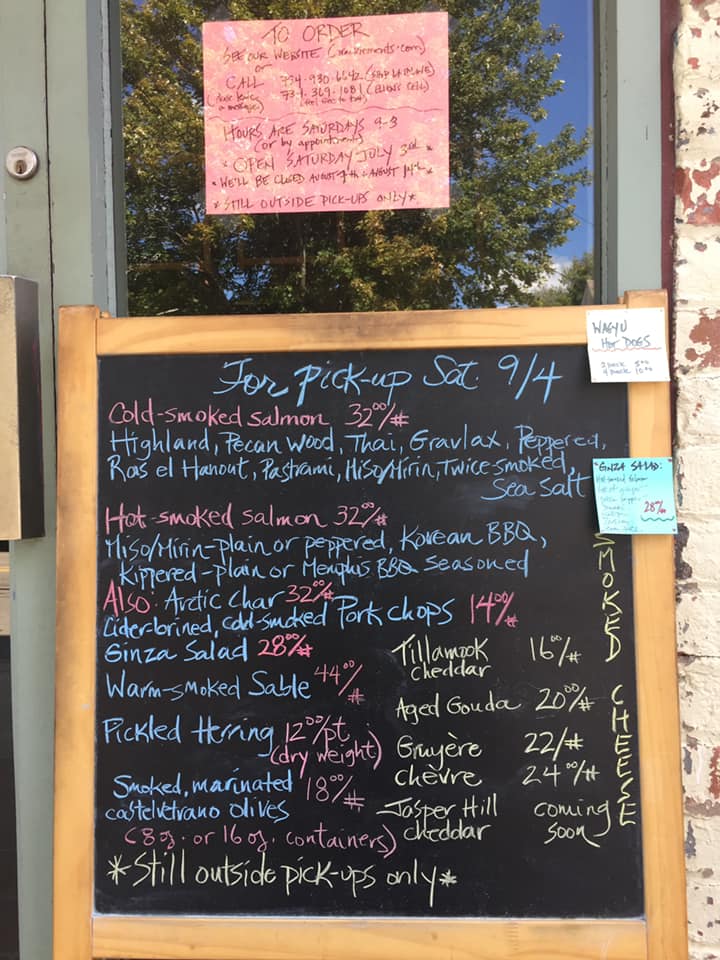 TO ORDER
SEE OUR WEBSITE
or
CALL 734-930-6642
734-369-1081
HOURS ARE SATURDAYS 9-3
(or by appointment)
* OPEN SATURDAY JULY 3rd *
* WE'LL BE CLOSED AUGUST
* STILL OUTSIDE PICK-UPS ONLY *
WAGYU
HOT DOGS
2 pack 5.00
4 pack 10.00
For pick-up Sat. 9/4
Cold-smoked salmon 32.00/#
Highland, Pecan Wood, Thai, Gravlax, Peppered,
Ras el Hanout, Pastrami, Miso/Mirin, Twice smoked,
Sea Salt
"GINZA SALAD:
Hot-smoked salmon
28.00/#
Hot-smoked salmon 32.00/#
Miso/Mirin-plain or peppered, Korean BBQ,
Kippered-plain or Memphis BBQ seasoned
Also: Arctic Char 32.00/#
Cider-brined, cold-smoked Pork chops 14.00/#
Ginza Salad 28.00/#
Warm-smoked Sable 44.00/#
Pickled Herring 12.00/pt
(dry weight)
Smoked, marinated 18.00/#
castelvetrano olives
(8 oz. or 16 oz. containers)
SMOKED CHEESE
Tillamook 16.00/#
cheddar
Aged Gouda 20.00/#
Gruyère 22/#
chèvre 24.00/#
Jasper Hill coming
cheddar soon
*Still outside pick-ups only*